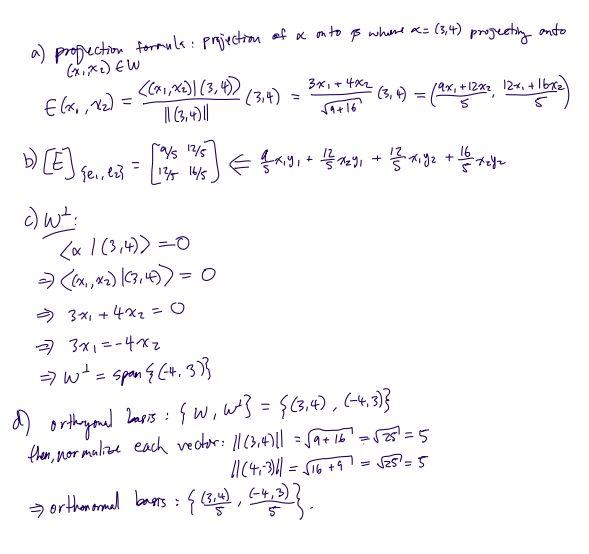 a) projection formula: projection of α onto β where α = (3,4) projecting onto
(x₁,x₂) ∈ W
E(x₁,x₂) = <(x₁,x₂)|(3,4)> / ||(3,4)|| (3,4) = (3x₁+4x₂)/√(9+16) (3,4) = ((9x₁+12x₂)/5, (12x₁+16x₂)/5)
b) [E]_{e₁,e₂} = [9/5 12/5; 12/5 16/5] ⇐ 9/5 x₁y₁ + 12/5 x₂y₁ + 12/5 x₁y₂ + 16/5 x₂y₂
c) W^⊥:
<α | (3,4)> = 0
⇒ <(x₁,x₂)|(3,4)> = 0
⇒ 3x₁ + 4x₂ = 0
⇒ 3x₁ = -4x₂
⇒ W^⊥ = span{(-4,3)}
d) orthogonal basis: {W, W^⊥} = {(3,4), (-4,3)}
then, normalize each vector: ||(3,4)|| = √(9+16) = √25 = 5
||(4,-3)|| = √(16+9) = √25 = 5
⇒ orthonormal basis: {(3,4)/5, (-4,3)/5}.